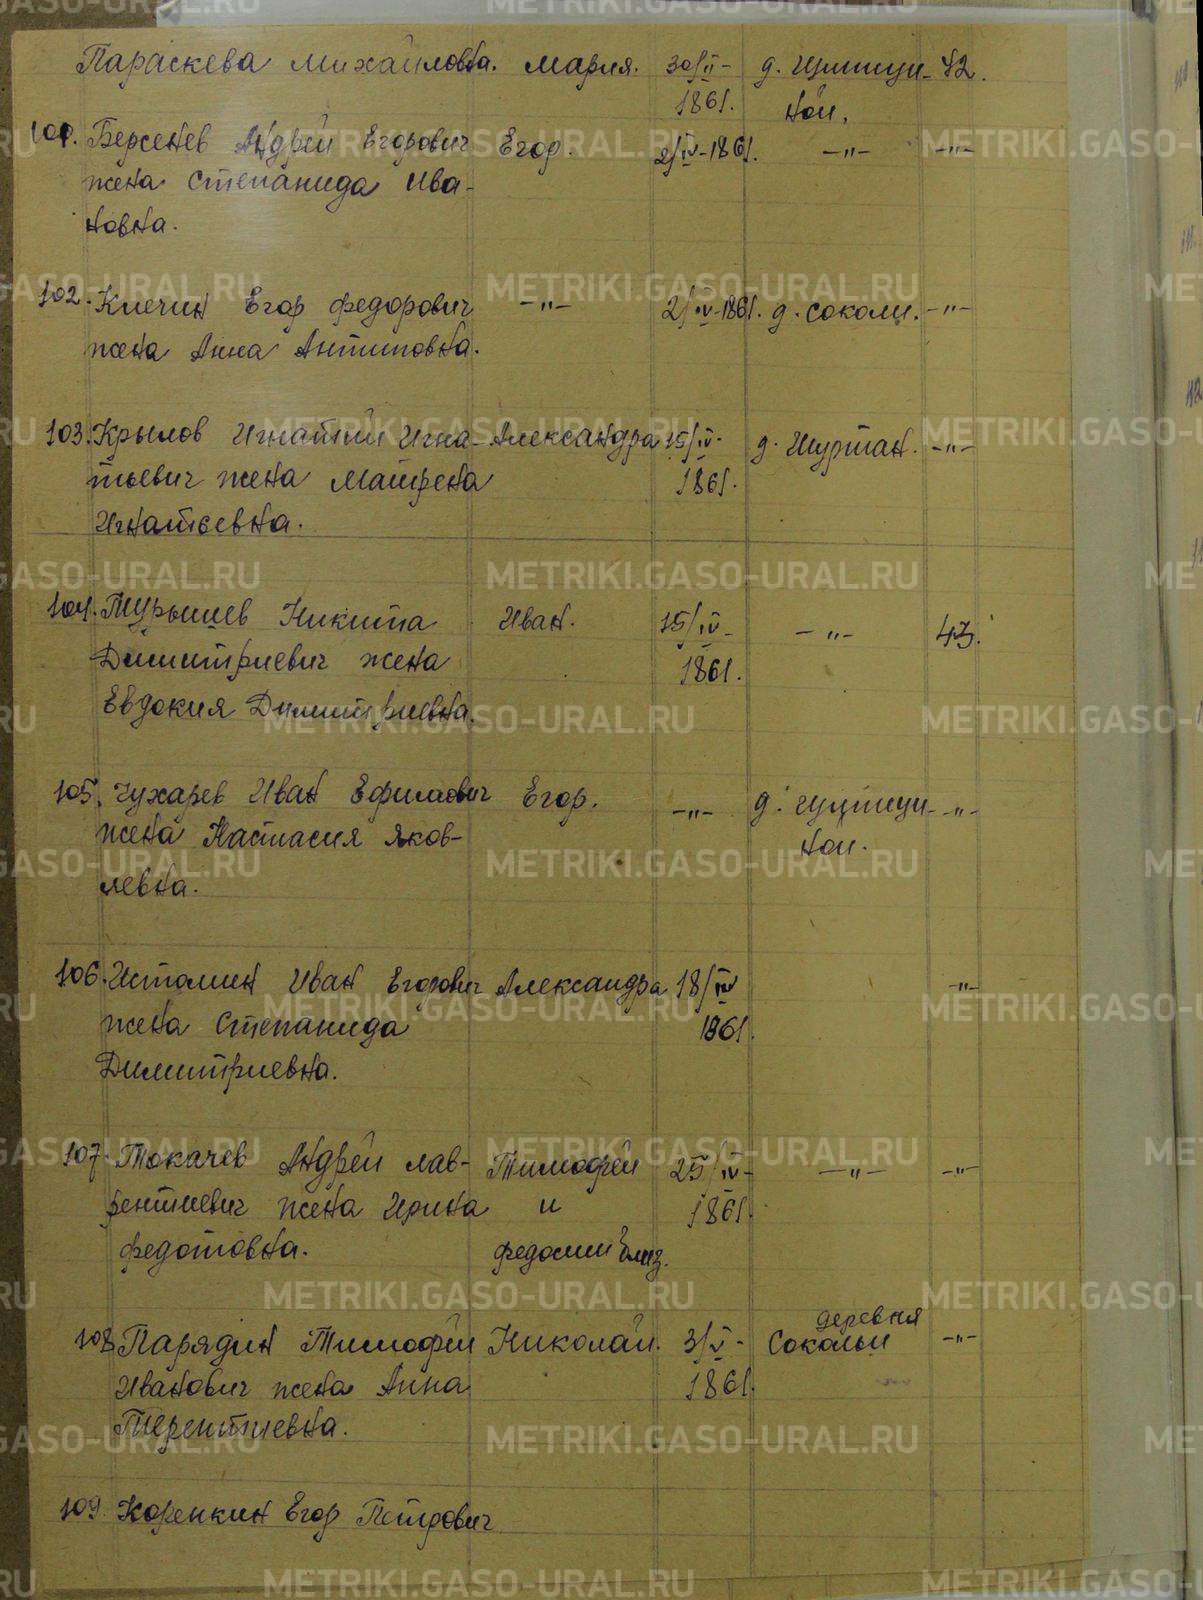 Параскева Михайловна. Мария. 30/II- д. Щипици- 42.
1861. ной.
101. Берсенев Андрей Егорович Егор. 2/IV-1861. -"- -"-
жена Степанида Ива-
новна.
102. Ключин Егор Федорович -"- 2/IV-1861. д. Соколи. -"-
жена Анна Антиповна.
103. Крылов Игнатий Игна- Александра 15/IV- д. Шуртан. -"-
тьевич жена Матрена 1861.
Игнатьевна.
104. Турышев Никита Иван. 15/IV- -"- 43.
Димитриевич жена 1861.
Евдокия Димитриевна.
105. Чухарев Иван Ефимович Егор. -"- д. -"-
жена Настасия Яков- ной.
левна.
106. Истомин Иван Егорович Александра 18/IV -"-
жена Степанида 1861.
Димитриевна.
107. Токачев Андрей Лав- Тимофей 25/IV- -"- -"-
рентиевич жена Ирина и 1861.
Федотовна. Федосий близ.
деревня
108 Парядин Тимофей Николай. 3/V- Соколы -"-
Иванович жена Анна 1861.
Терентиевна.
109. Коренкин Егор Петрович
METRIKI.GASO-URAL.RU